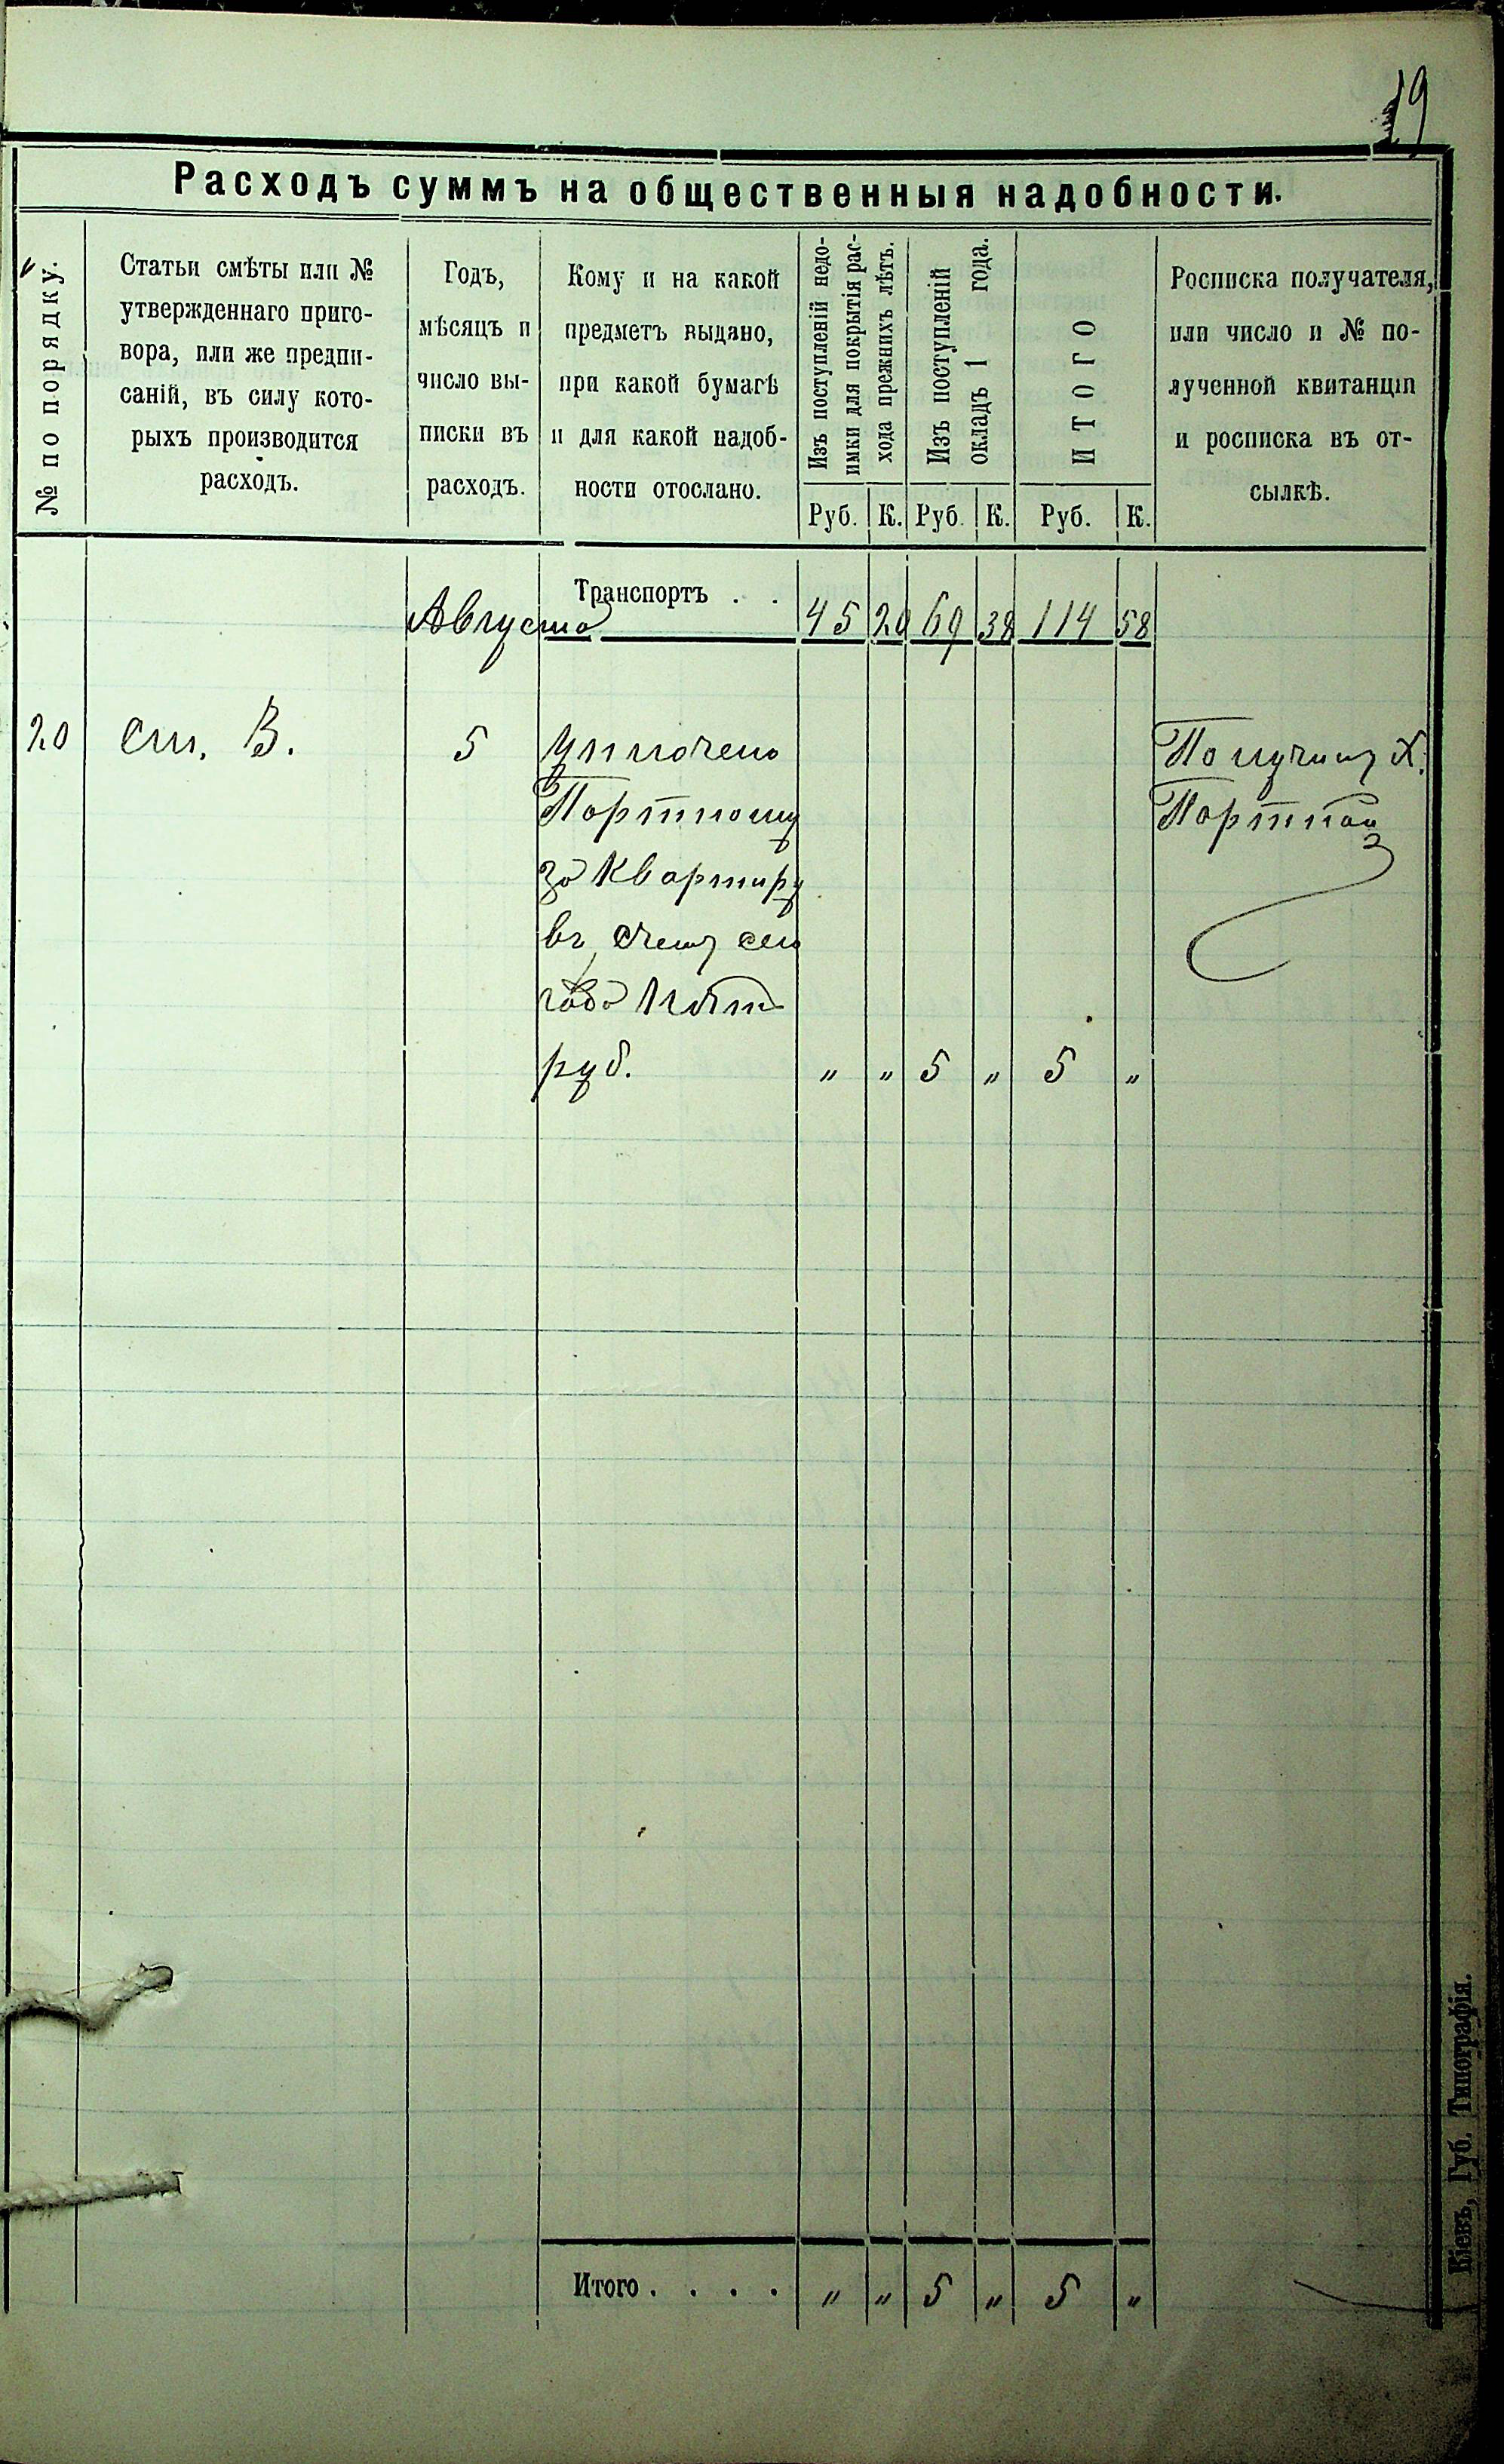 19
Расходъ суммъ на общественныя надобности.
№ по порядку.
Статьи смѣты или №
утвержденнаго приго-
вора, или же предпи-
саній, въ силу кото-
рыхъ производится
расходъ.
Годъ,
мѣсяцъ и
число вы-
писки въ
расходъ.
Кому и на какой
предметъ выдано,
при какой бумагѣ
и для какой надоб-
ности отослано.
Изъ поступленій недо-
имки для покрытія рас-
хода прежнихъ лѣтъ.
Изъ поступленій
окладъ 1 года.
ИТОГО
Руб. К. Руб. К. Руб. К.
Росписка получателя,
или число и № по-
лученной квитанціи
и росписка въ от-
сылкѣ.
Транспортъ . .
Августа 45 20 69 38 114 58
20 ст. В. 5 Уплочено
Портному
за квартиру
въ счетъ сего
года Пять
руб. " " 5 " 5 "
Получилъ Х.
Портной
Итого . . . . " " 5 " 5 "
Кіевъ, Губ. Типографія.